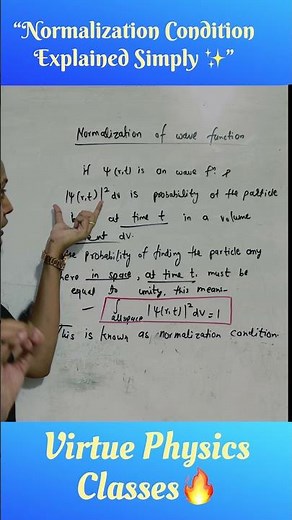 “Normalization Condition
Explained Simply ✨”
Normalization of wave function
If ψ(r,t) is on wave fⁿ. &
|ψ(r,t)|² dv is probability of the particle
at time t in a volume
dv.
probability of finding the particle any
here in space, at time t. must be
equal to unity, this means
∫allspace |ψ(r,t)|² dv = 1
This is known as normalization condition.
Virtue Physics
Classes🔥